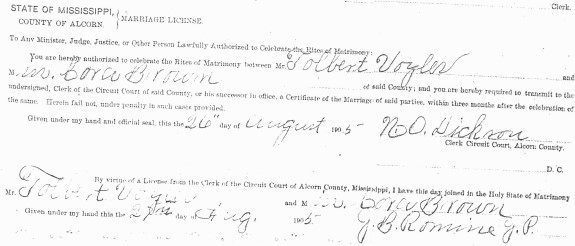 Clerk.
STATE OF MISSISSIPPI,
COUNTY OF ALCORN.
MARRIAGE LICENSE.
To Any Minister, Judge, Justice, or Other Person Lawfully Authorized to Celebrate the Rites of Matrimony:
You are hereby authorized to celebrate the Rites of Matrimony between Mr. Tolbert Voyles and
M iss Cora Brown of said County; and you are hereby required to transmit to the
undersigned, Clerk of the Circuit Court of said County, or his successor in office, a Certificate of the Marriage of said parties, within three months after the celebration of
the same. Herein fail not, under penalty in such cases provided.
Given under my hand and official seal, this the 26" day of August 1905 N.O. Dickson
Clerk Circuit Court, Alcorn County.
D. C.
By virtue of a License from the Clerk of the Circuit Court of Alcorn County, Mississippi, I have this day joined in the Holy State of Matrimony
Mr. Tolbert Voyles and M iss Cora Brown
Given under my hand this the 27th day of Aug. 1905 G.B. Romine J.P.